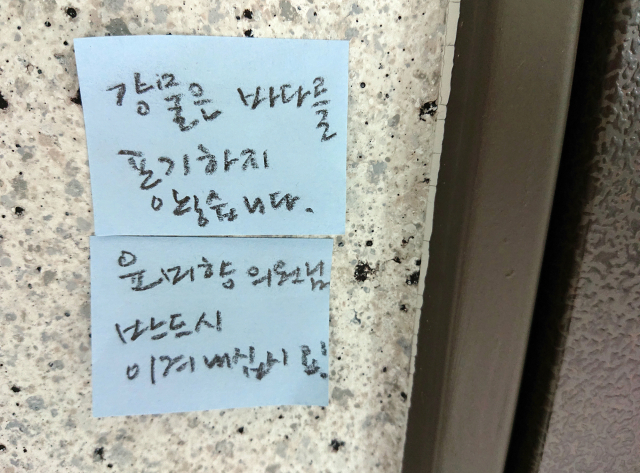 강물은 바다를
포기하지
않습니다.
윤미향 의원님
반드시
이겨내십시요!